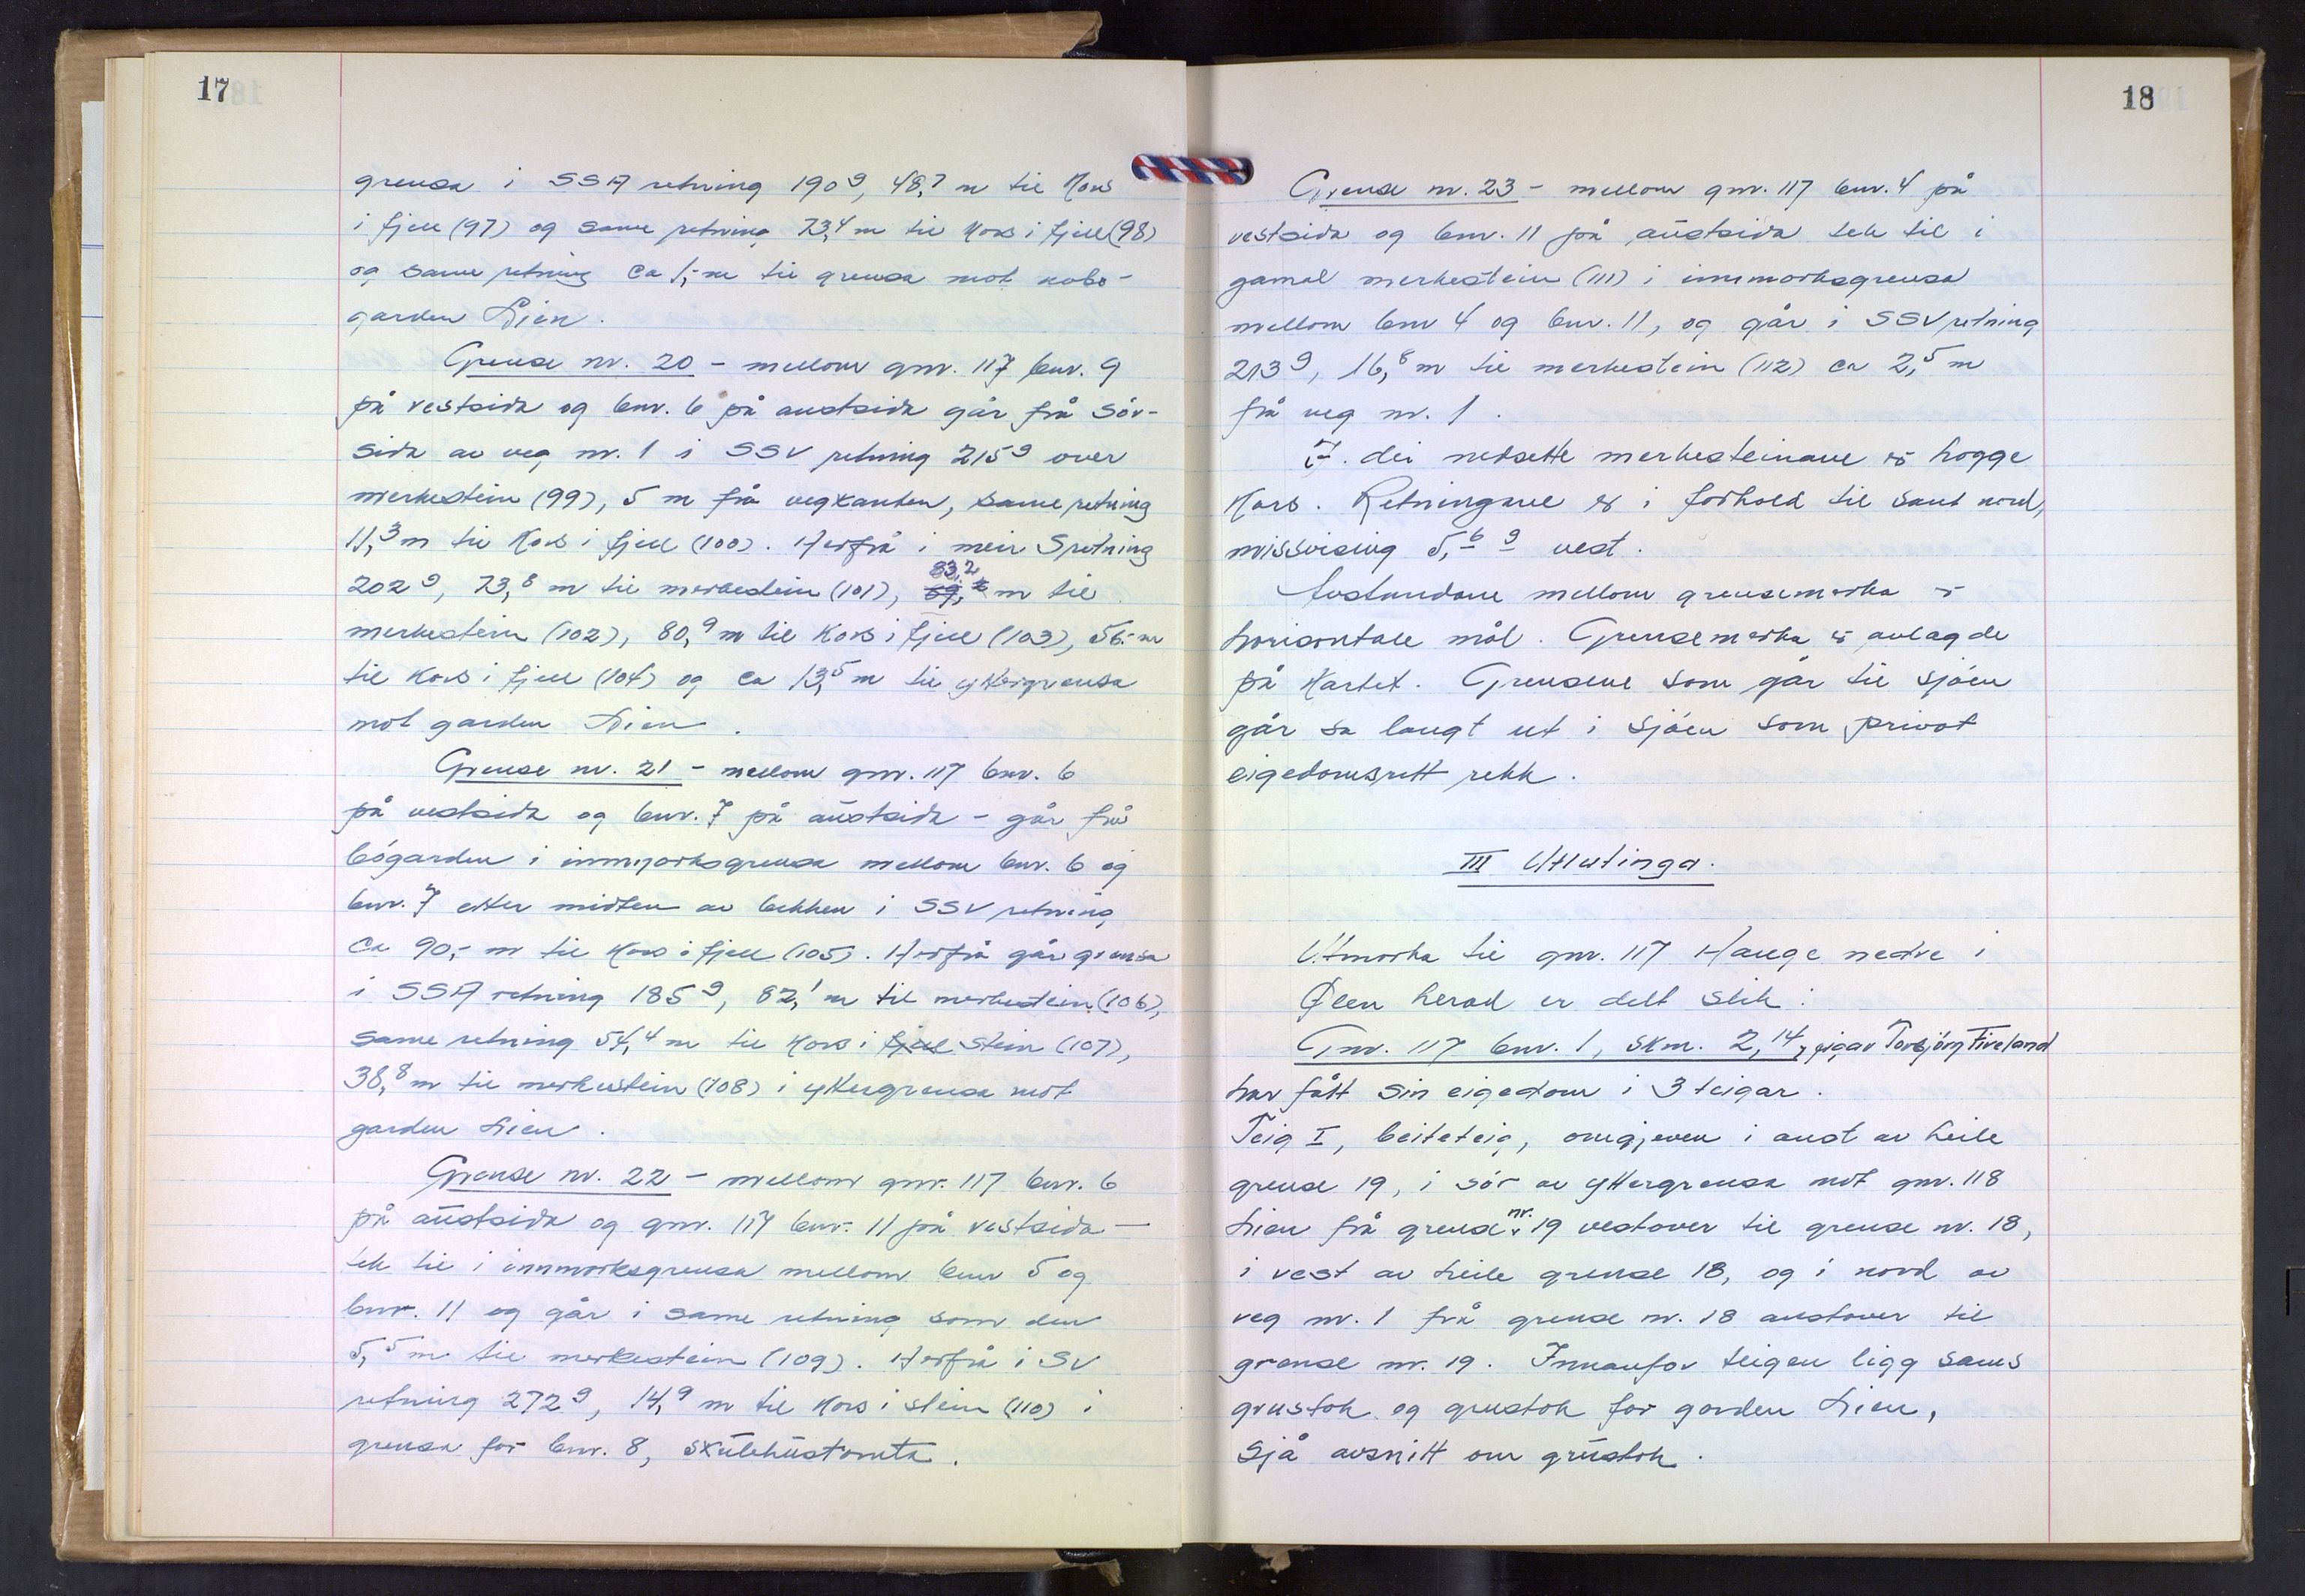 17
grensa i SSA retning 190 g, 48,7 m til kors
i fjell (97) og same retning 73,4 m til kors i fjell (98)
og same retning ca 1,- m til grensa mot nabo-
garden Lien.
Grense nr. 20 - mellom gnr. 117 bnr. 9
på vestsida og bnr. 6 på austsida går frå sør-
sida av veg nr. 1 i SSV retning 215 g over
merkestein (99), 5 m frå vegkanten, same retning
11,3 m til kors i fjell (100). Herfrå i meir S retning
202 g, 73,8 m til merkestein (101), 83,2 m til
merkestein (102), 80,9 m til kors i fjell (103), 56,- m
til kors i fjell (104) og ca 13,5 m til yttergrensa
mot garden Lien.
Grense nr. 21 - mellom gnr. 117 bnr. 6
på vestsida og bnr. 7 på austsida - går frå
bøgarden i innmarksgrensa mellom bnr. 6 og
bnr. 7 etter midten av bekken i SSV retning
ca 90,- m til kors i fjell (105). Herfrå går grensa
i SSA retning 185 g, 82,1 m til merkestein (106),
same retning 54,4 m til kors i fjell stein (107),
38,8 m til merkestein (108) i yttergrensa mot
garden Lien.
Grense nr. 22 - mellom gnr. 117 bnr. 6
på austsida og gnr. 117 bnr. 11 på vestsida -
tek til i innmarksgrensa mellom bnr 5 og
bnr. 11 og går i same retning som den
5,5 m til merkestein (109). Herfrå i SV
retning 272 g, 14,9 m til kors i stein (110) i
grensa for bnr. 8, skulehustomta.
18
Grense nr. 23 - mellom gnr. 117 bnr. 4 på
vestsida og bnr. 11 på austsida tek til i
gamal merkestein (111) i innmarksgrensa
mellom bnr 4 og bnr. 11, og går i SSV retning
213 g, 16,8 m til merkestein (112) ca 2,5 m
frå veg nr. 1.
I dei nedsette merkesteinane er hogge
kors. Retningane er i forhold til sant nord,
missvising 5,6 g vest.
Avstandane mellom grensemerka er
horisontale mål. Grensemerka er avlagde
på kartet. Grensene som går til sjøen
går så langt ut i sjøen som privat
eigedomsrett rekk.
III Utlutinga.
Utmarka til gnr. 117 Hauge nedre i
Ølen herad er delt slik:
Gnr. 117 bnr. 1, skm. 2,14, eigar Torbjørg Fiveland
har fått sin eigedom i 3 teigar.
Teig I, beiteteig, omgjeven i aust av heile
grense 19, i sør av yttergrensa mot gnr. 118
Lien frå grense nr. 19 vestover til grense nr. 18,
i vest av heile grense 18, og i nord av
veg nr. 1 frå grense nr. 18 austover til
grense nr. 19. Innanfor teigen ligg sams
grustak og grustak for garden Lien,
sjå avsnitt om grustak.